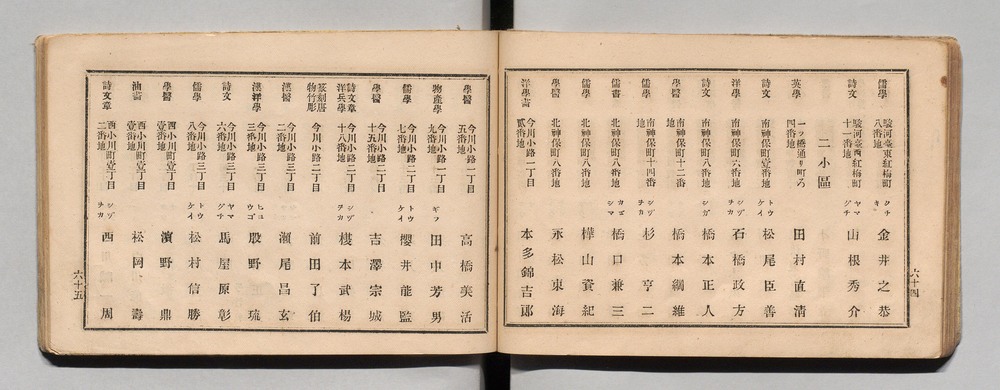 儒學 駿河臺東紅梅町八番地 クチキ 金井之恭
詩文 駿河臺西紅梅町十一番地 ヤマグチ 山根秀介
二小區
英學 一ツ橋通リ町四番地 田村直清
詩文 南神保町壹番地 トウケイ 松尾臣善
洋學 南神保町六番地 シヅヲカ 石橋政方
詩文 南神保町八番地 シガ 橋本正人
學醫 南神保町十二番地 橋本綱維
儒學 南神保町十四番地 シヅヲカ 杉亨二
儒書 北神保町八番地 カゴシマ 橋口兼三
儒學 北神保町八番地 樺山資紀
學醫 北神保町八番地 永松東海
洋學書 今川小路一丁目貳番地 本多錦吉郎
六十四
學醫 今川小路一丁目五番地 高橋美活
物產學 今川小路一丁目九番地 ギフ 田中芳男
儒學 今川小路二丁目七番地 トウケイ 櫻井能監
學醫 今川小路二丁目十五番地 吉澤宗城
詩文章洋兵學 今川小路二丁目十八番地 シヅヲカ 榎本武楊
篆刻唐物竹彫 今川小路二丁目 前田了伯
漢醫 今川小路三丁目二番地 瀬尾昌玄
漢洋學 今川小路三丁目三番地 ヒョウゴ 股野琢
詩文 今川小路三丁目六番地 ヤマグチ 馬屋原彰
儒學 今川小路三丁目八番地 トウケイ 松村信勝
學醫 西小川町壹丁目壹番地 濱野鼎
油畫 西小川町壹丁目壹番地 松岡壽
詩文章 西小川町壹丁目二番地 シヅヲカ 西周
六十五